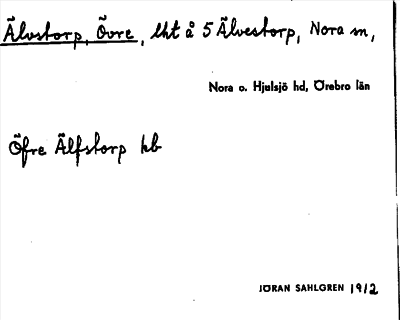 Älvstorp, Övre, lht å 5 Älvestorp, Nora sn,
Nora o. Hjulsjö hd, Örebro län
Öfre Älfstorp kb
JÖRAN SAHLGREN 1912